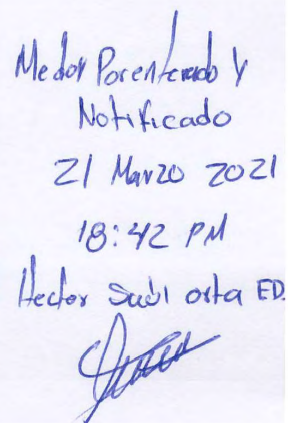 Me doy Por enterado Y
Notificado
21 Marzo 2021
18:42 PM
Hector Saúl orta ED.